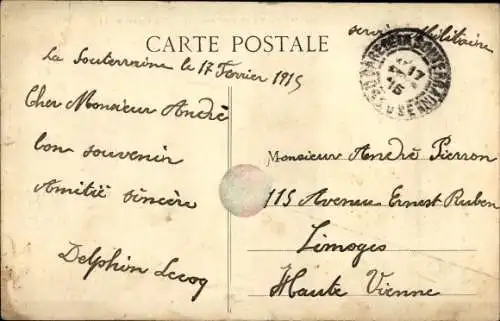 service Militaire
CARTE POSTALE
La Souterraine le 17 Fevrier 1915
Cher Monsieur André
bon souvenir
Amitié sincère
Delphin Lecoq
Monsieur André Pierron
115 Avenue Ernest Ruben
Limoges
Haute Vienne
GARE DE LA SOUTERRAINE
17
15
CREUSE